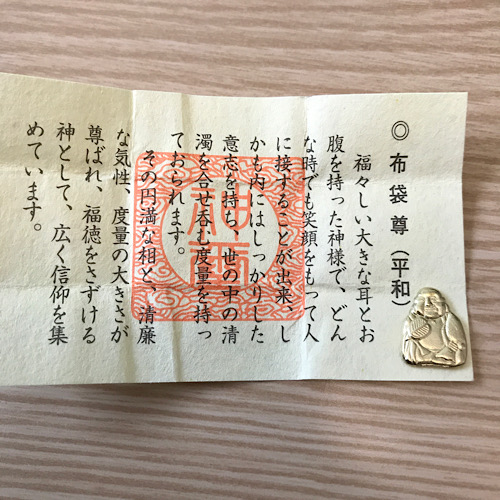 ◎布袋尊（平和）
福々しい大きな耳とお
腹を持った神様で、どん
な時でも笑顔をもって人
に接することが出来、し
かも内にはしっかりした
意志を持ち、世の中の清
濁を合せ呑む度量を持っ
ておられます。
その円満な相と、清廉
な気性、度量の大きさが
尊ばれ、福徳をさずける
神として、広く信仰を集
めています。
神璽